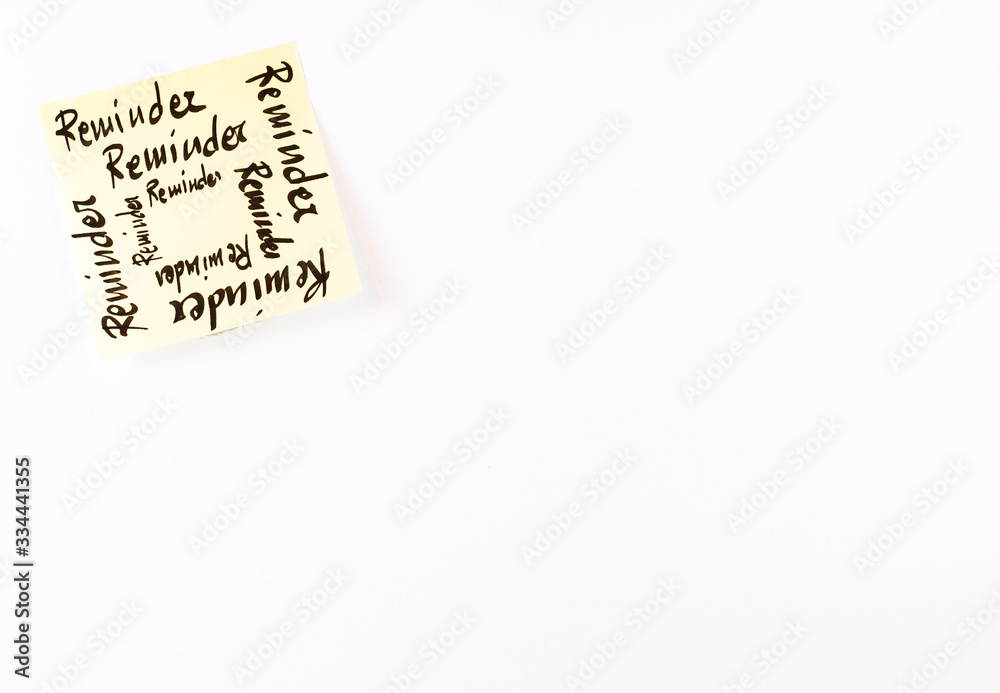 Reminder
Reminder
Reminder
Reminder
Reminder
Reminder
Reminder
Reminder
Reminder
Adobe Stock | #334441355